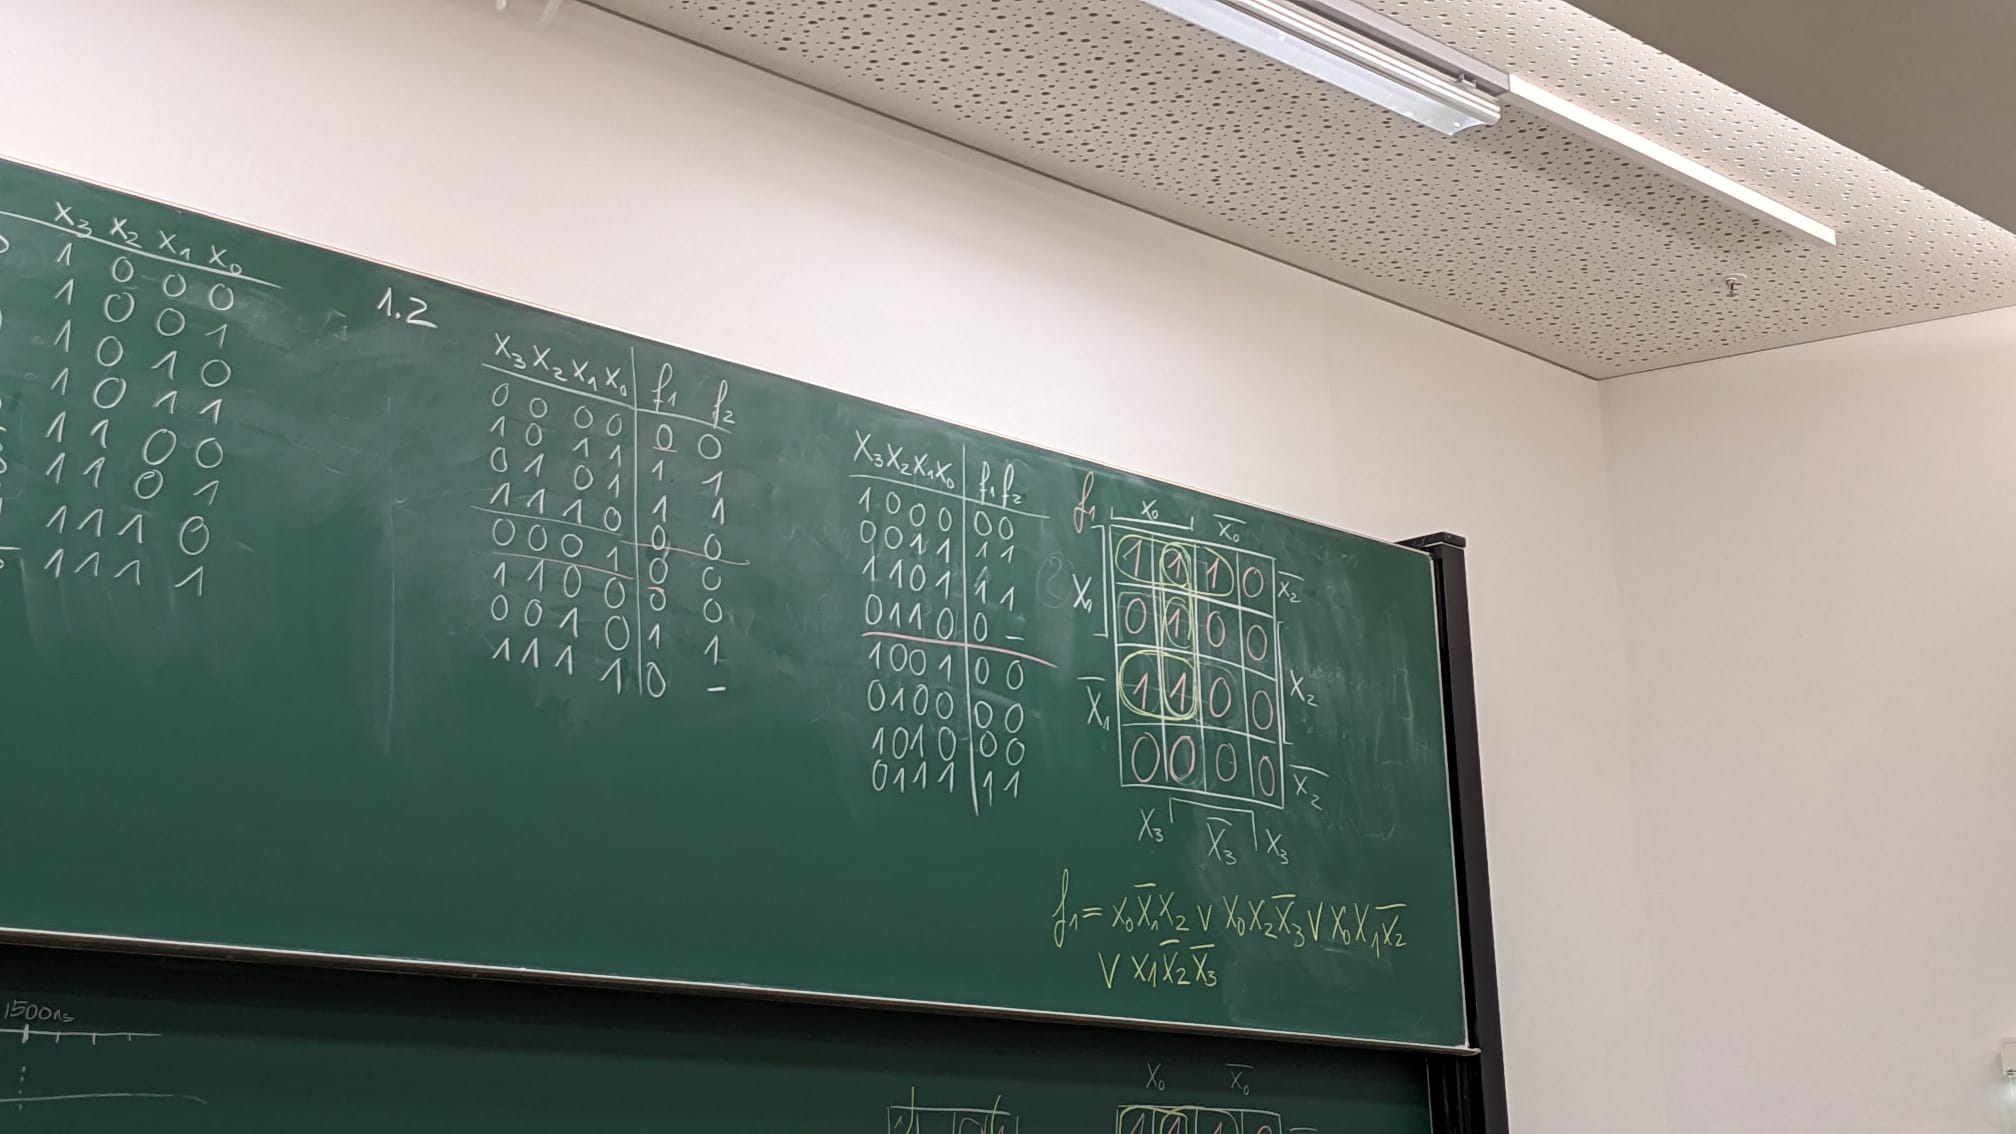 X₃ X₂ X₁ X₀
1 0 0 0
1 0 0 1
1 0 1 0
1 0 1 1
1 1 0 0
1 1 0 1
1 1 1 0
1 1 1 1
1.2
X₃ X₂ X₁ X₀ f₁ f₂
0 0 0 0 0 0
1 0 1 1 1 1
0 1 0 1 1 1
1 1 1 0 0 0
0 0 0 1 0 0
1 1 0 0 0 0
0 0 1 0 1 1
1 1 1 1 0 –
X₃X₂X₁X₀ f₁f₂
1000 00
0011 11
1101 11
0110 0–
1001 00
0100 00
1010 00
0111 11
f₁ X₀ X̅₀
1 1 1 0 X̅₂
X₁
0 1 0 0
X₂
X̅₁ 1 1 0 0
0 0 0 0 X̅₂
X₃ X̅₃ X₃
f₁ = X₀X̅₁X₂ ∨ X₀X₂X̅₃ ∨ X₀X₁X̅₂
∨ X₁X̅₂X̅₃
1500ns
X₀ X̅₀
1 1 1 0